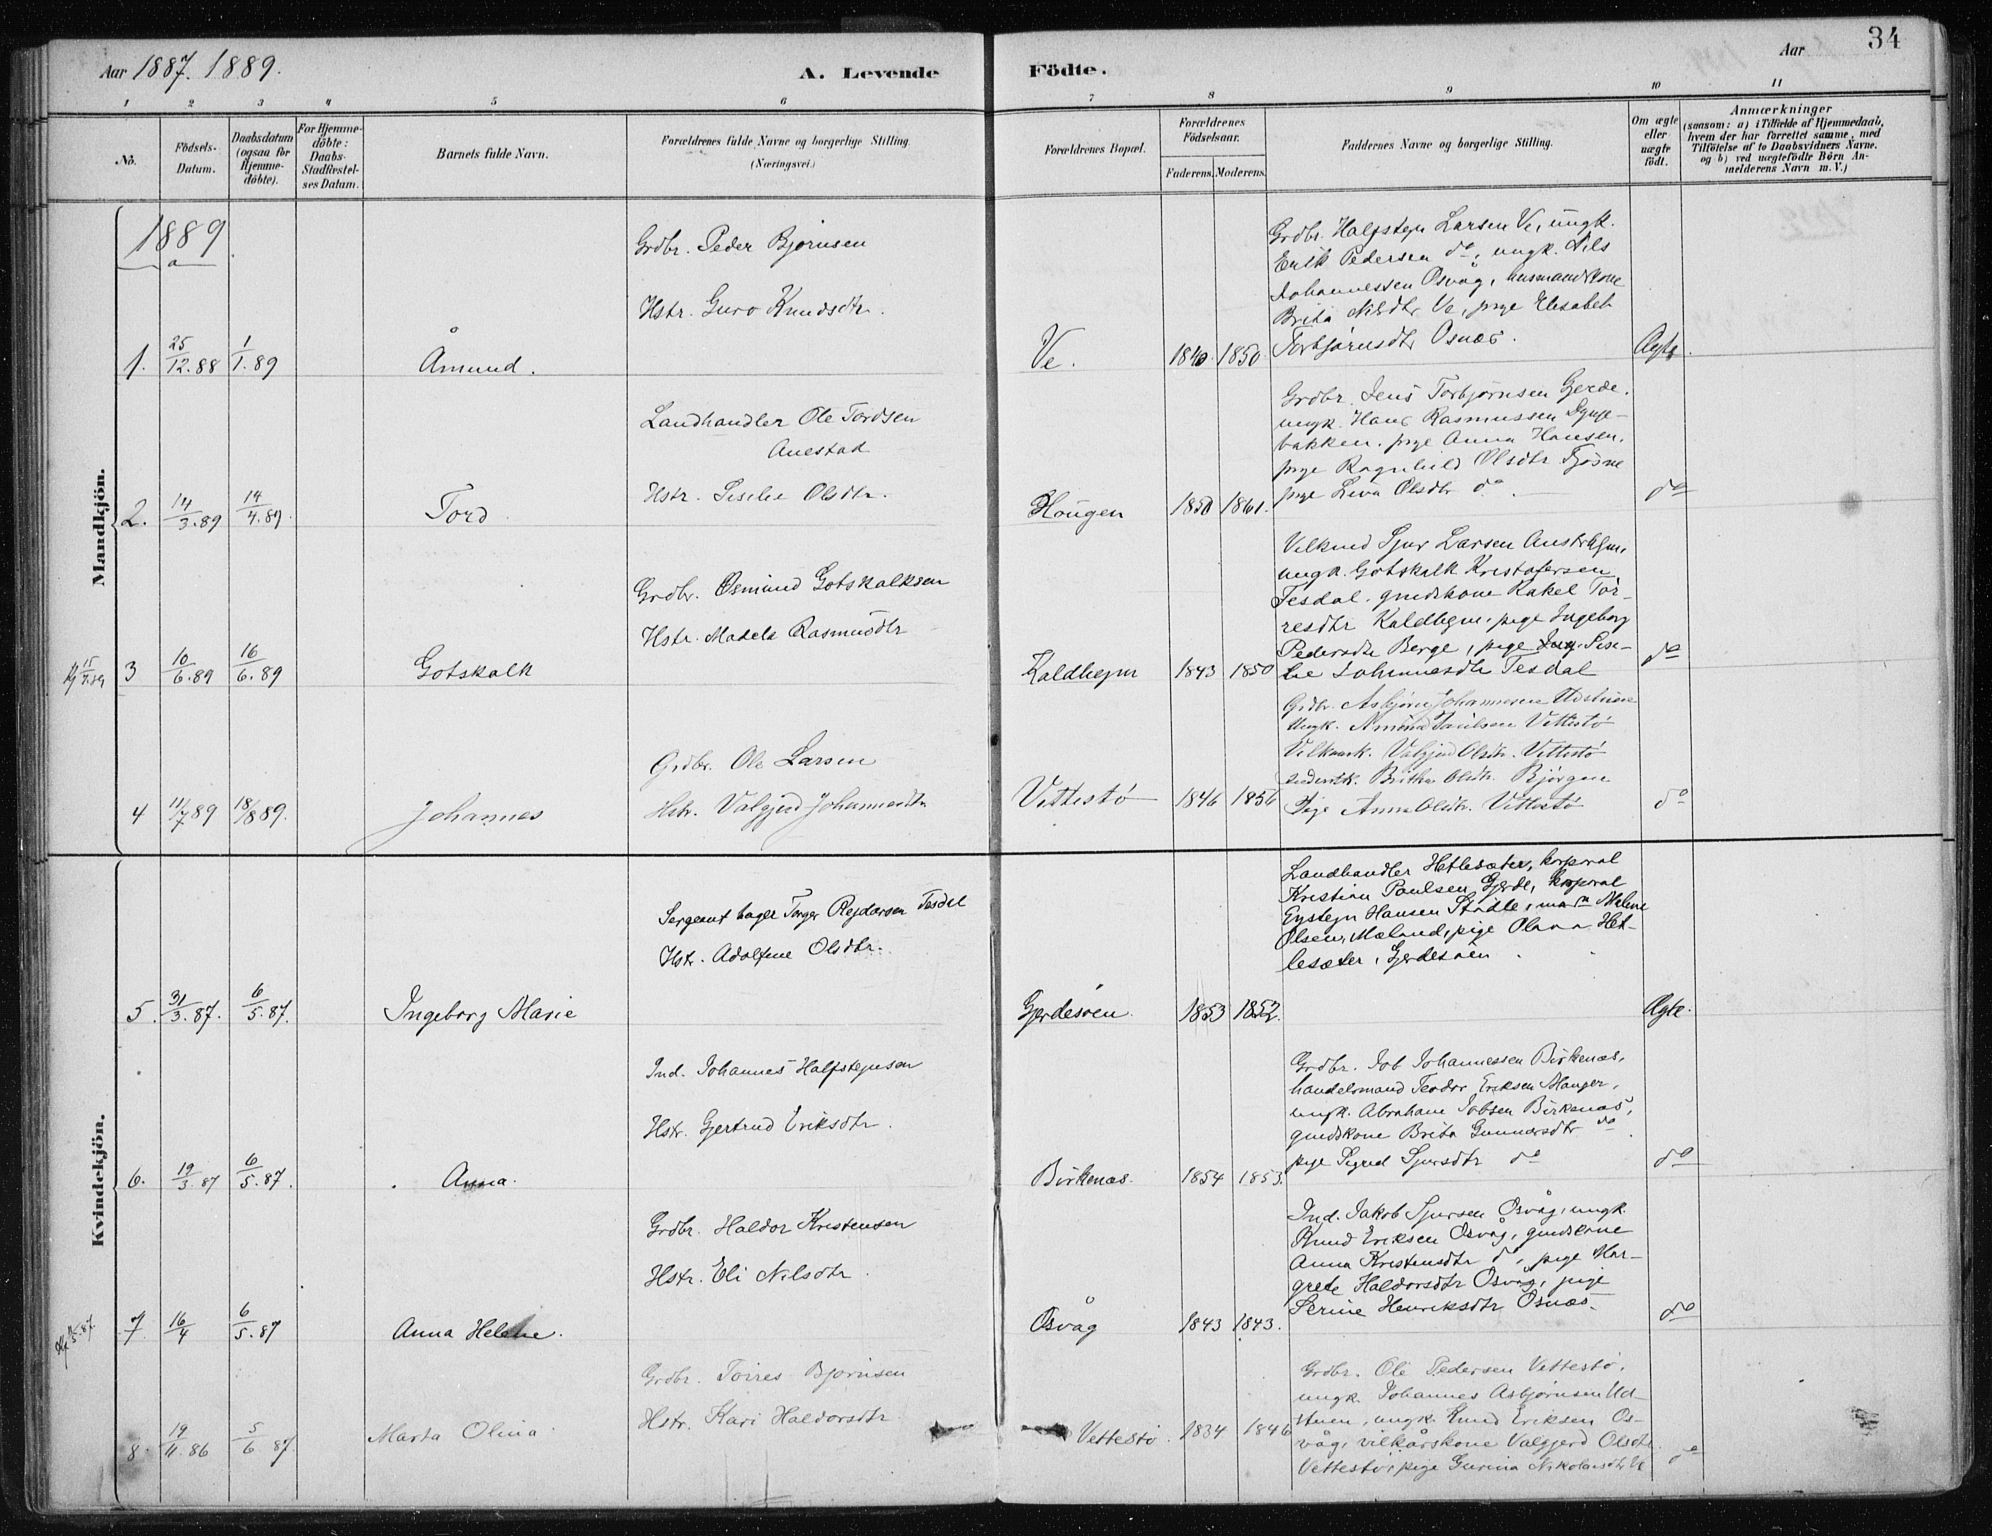 Aar 1887. 1889.
A. Levende
Födte.
Aar
34
1 2 3 4 5 6 7 8 9 10 11
No.
Födsels-Datum.
Daabsdatum (ogsaa for Hjemme-döbte).
For Hjemme-döbte: Daabs-Stadfæstel-ses Datum.
Barnets fulde Navn.
Forældrenes fulde Navne og borgerlige Stilling. (Næringsvei.)
Forældrenes Bopæl.
Forældrenes Födselsaar.
Faderens. Moderens.
Faddernes Navne og borgerlige Stilling.
Om ægte eller uægte födt.
Anmærkninger
(saasom: a) i Tilfælde af Hjemmedaab,
hvem der har forrettet samme, med
Tilföielse af to Daabsvidners Navne.
og b) ved uægtefödte Börn An-
melderens Navn m. V.)
Mandkjön.
1889
Grdbr. Peder Bjørnsen
Hstr. Guro Knudsdtr.
Grdbr. Halfstejn Larsen Ve, ungk.
Erik Pedersen do, ungk. Nils
Johannessen Osvåg, husmandskone
Brita Nilsdtr Ve, pige Elisabet
Torbjørnsdtr Osnæs.
1. 25/12.88 1/1.89 Åmund. Ve. 1840. 1850. Ægte.
Landhandler Ole Tordsen
Anestad
Hstr. Siselie Olsdtr.
Grdbr. Jens Torbjørnsen Gjerde.
ungk. Hans Rasmussen Dynje-
bakken. pige Anna Hansen.
pige Ragnhild Olsdtr Fjøsne
pige Lina Olsdtr do.
2. 14/3.89 14/4.89. Tord Hougen 1850 1861. do
Grdbr. Osmund Gotskalksen
Hstr. Madele Rasmusdtr
Vilkmd Sjur Larsen Austrhejm,
ungk. Gotskalk Kristofersen
Tesdal. gmdskone Rakel Tor-
resdtr Kaldhejm, pige Ingeborg
Pedersdtr Berge, pige Sise-
lie Johannesdtr Tesdal
3 10/6.89 16/6.89 Gotskalk Kaldhejm 1843 1850 do
Grdbr. Ole Larsen
Hstr. Valgjerd Johannesdtr
Grdbr. Asbjørn Johannesen Utstuene
Ungk. Amund Paulsen Vettestø
Vilkaark. Valgjerd Olsdtr. Vettestø
Brithe Olsdtr. Bjørgen
Pige Anna Olsdtr. Vettestø
4 11/7 89 18/8 89. Johannes Vettestø 1846 1856 do
Kvindekjön.
Sergeant Torger Rejdarsen Tesdal
Hstr. Adolfine Olsdtr.
Landhandler Hetlesæter, korporal
Kristian Paulsen Gjerde, korporal
Eystejn Hansen Stødle, Malene
Olsen, Mæland, pige Olava Het-
lesæter, Gjerdesøen.
5. 31/3.87. 6/5.87. Ingeborg Marie Gjerdesøen. 1853 1852. Ægte.
Ind. Johannes Halfstejnsen
Hstr. Gjertrud Eriksdtr.
Grdbr. Job Johannessen Birkenæs,
handelsmand Teodor Eriksen Manger,
ungk. Abraham Jobsen Birkenæs,
gmdskone Brita Gunnarsdtr do
pige Sigrid Sjursdtr do
6. 19/3.87 6/5.87. Anna. Birkenæs. 1854 1853. do
Grdbr. Haldor Kristensen
Hstr. Eli Nilsdtr.
Ind. Jakob Sjursen Osvåg, ungk.
Knud Eriksen Osvåg, gmdskone
Anna Kristensdtr do, pige Mar-
grete Haldorsdtr Osvåg, pige
Serine Henriksdtr Osnæs.
7 16/4 6/5.87 Anna Helene. Osvåg 1843 1843. do
Grdbr. Torres Bjørnsen
Hstr. Kari Haldorsdtr
Grdbr. Ole Pedersen Vettestø,
ungk. Johannes Asbjørnsen Ut-
stuen, ungk. Knud Eriksen Os-
våg, vilkårskone Valgjerd Olsdtr
Vettestø, pige Gurina Nikolaisdtr Ve
8. 19/11.86 5/6 87. Marta Olina Vettestø. 1834 1846 do